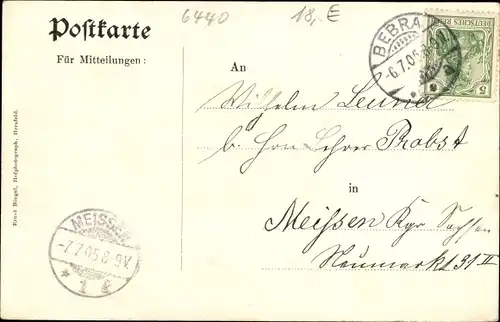 Postkarte
Für Mitteilungen:
6440
18,- €
BEBRA
-6.7.05.8-
DEUTSCHES REICH
5
An
Wilhelm
b. Hrn Lehrer Probst
in
Meissen Kgr Sachsen
Neumarkt 31 II
MEISSEN
-7.7.05.8-9V.
* 1 k
Ernst Bingel, Hofphotograph, Hersfeld.